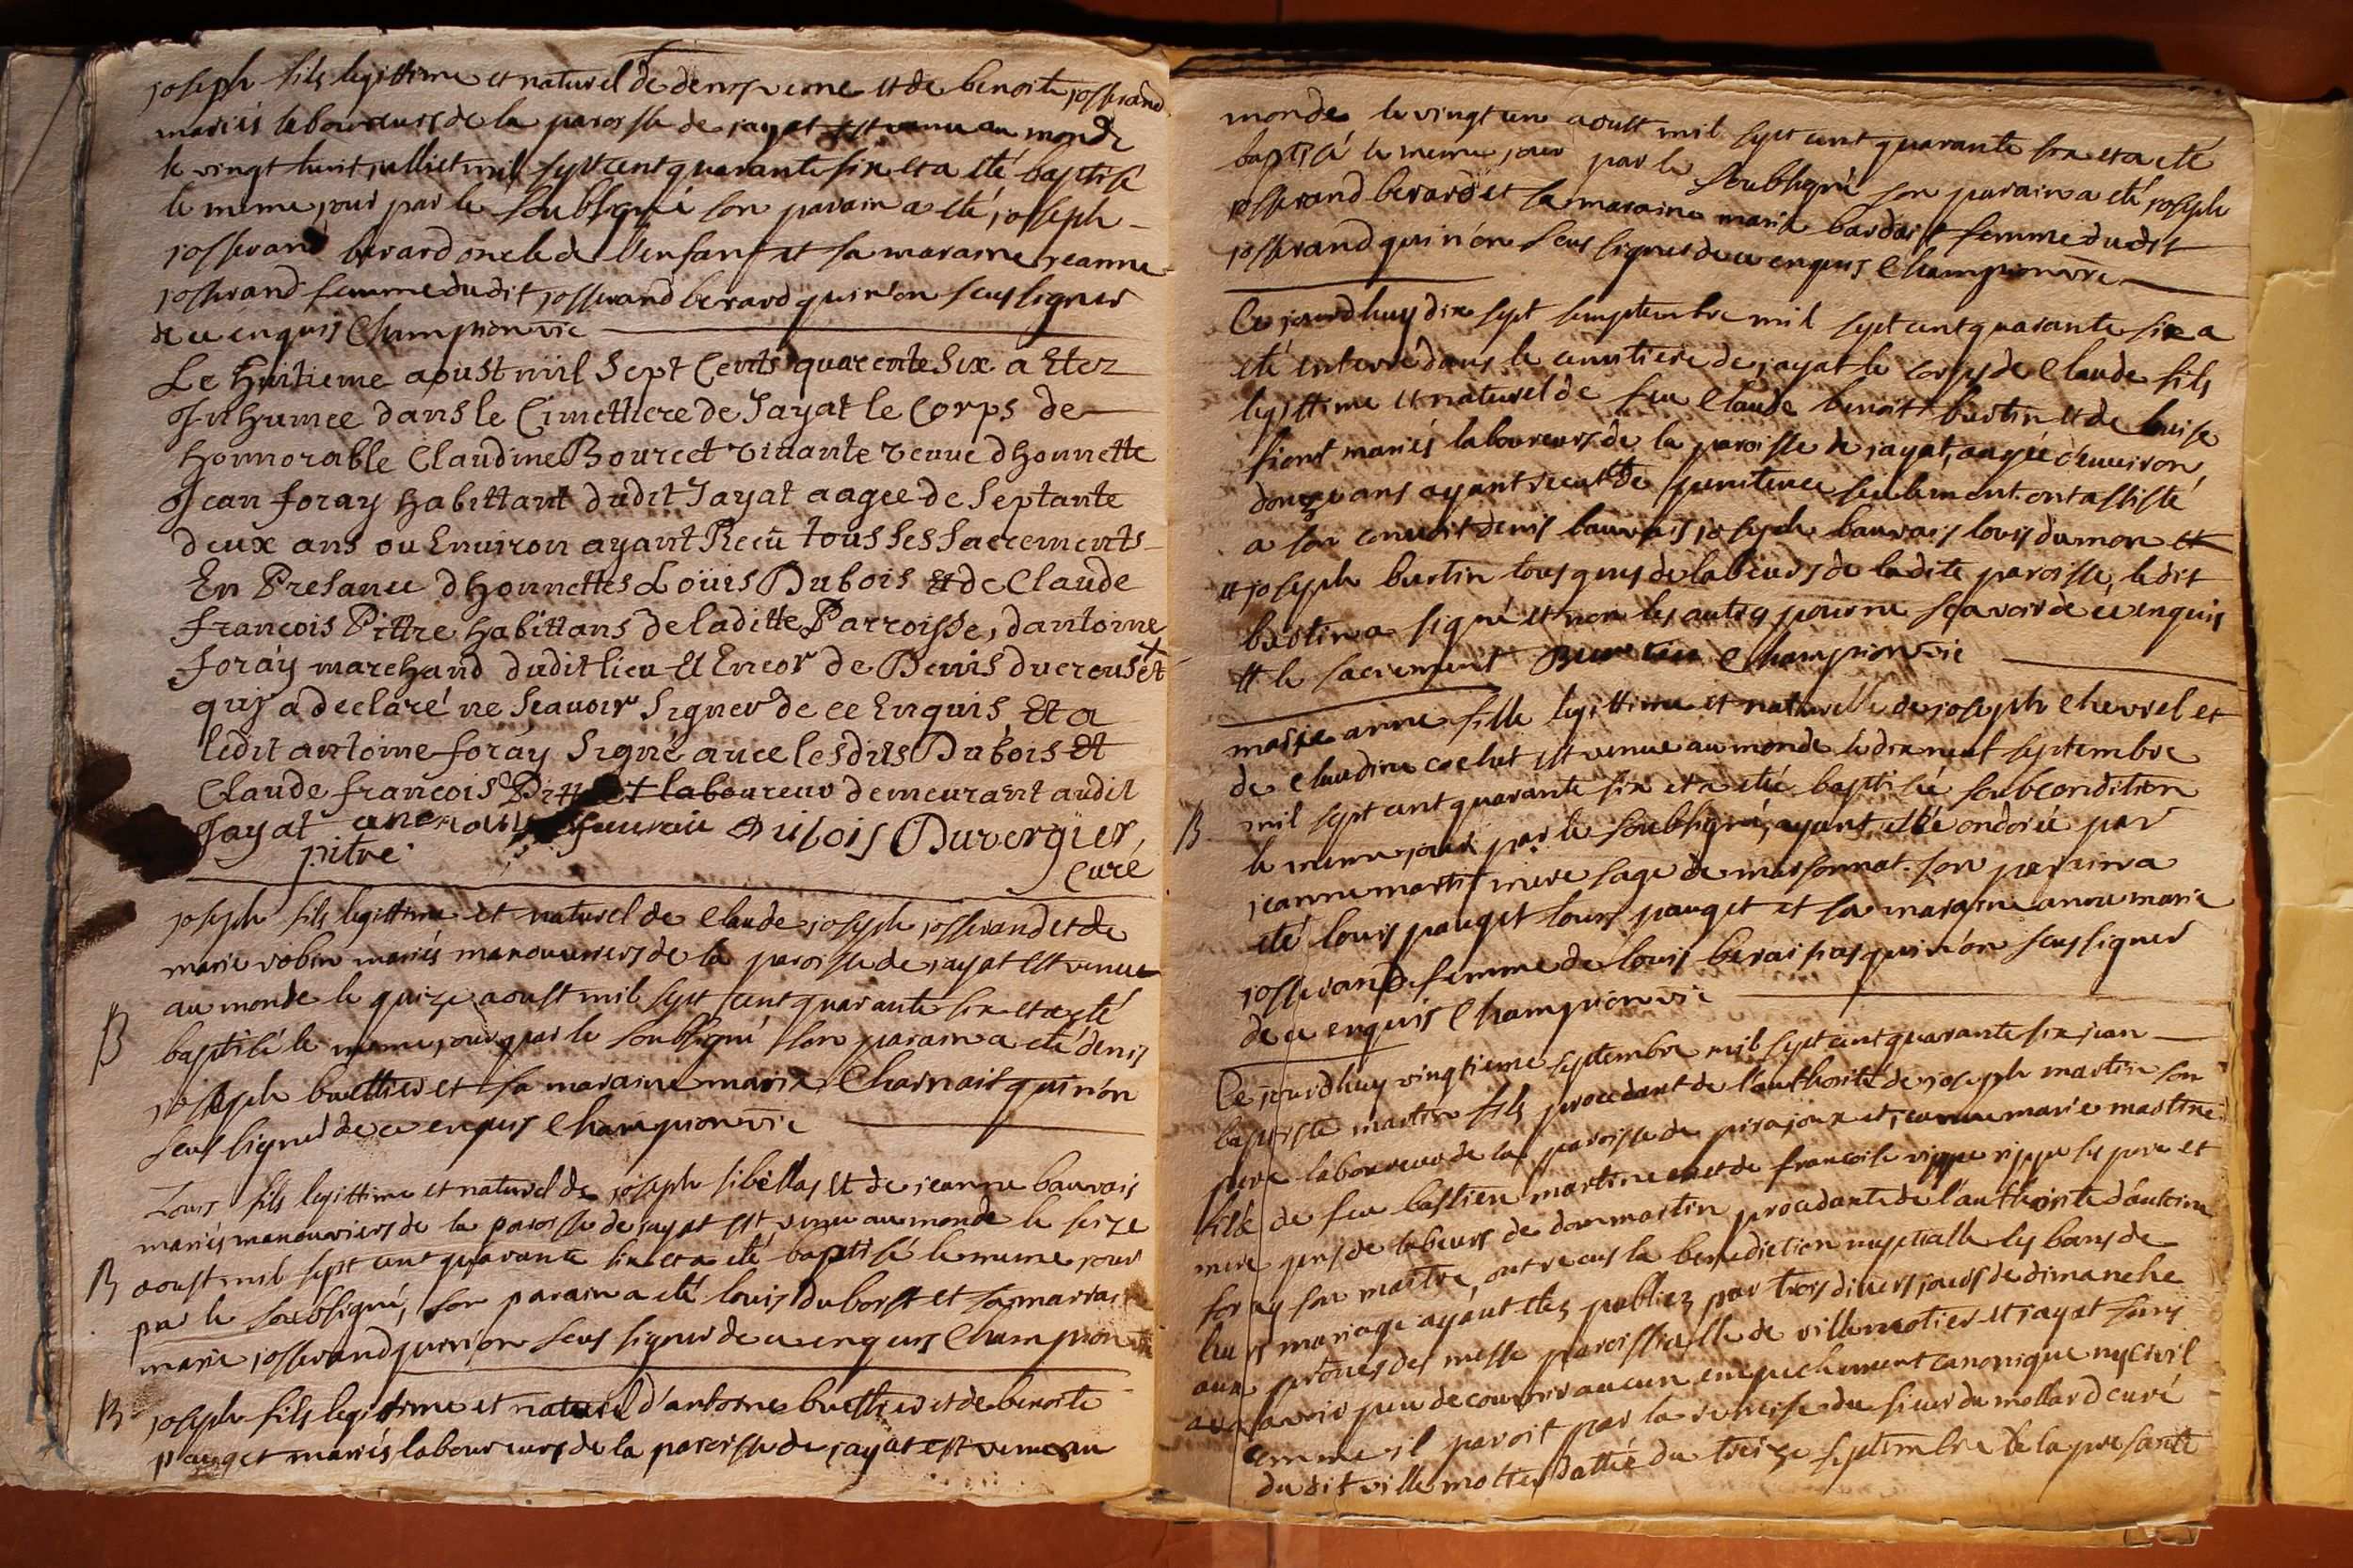 joseph fils legittime et naturel de denis
et de benoite josserand
mariés laboureurs de la paroisse de jayat est venu au monde
le vingt huit julliet mil sept cent quarante six et a eté baptisé
le meme jour par le soubsigné son parain a eté joseph
josserand berard oncle de l'enfant et sa maraine jeanne
josserand femme dudit josserand berard qui n'on seus signer
de ce enquis Champion vic
Le Huitieme aoust mil Sept Cents quarente Six a Etez
Inhumee dans le Cimettiere de Jayat le Corps de
honnorable Claudine Bouret vivante veuve d'honnette
Jean foray habittant dudit Jayat aagee de Septante
deux ans ou Environ ayant Recü tous ses Sacrements
En Presance d'honnettes Loüis Dubois Et de Claude
francois Pittre habittans de laditte Parroisse, dantoine
foräy marchand dudit lieu Et Encor de Denis ducrouset
quj a declaré ne Scauoir Signer de ce Enquis Et a
ledit antoine foräy Signé auec lesdits Dubois Et
Claude francois laboureur demeurant audit
Jayat Dubois Duvergier
pitre Curé
joseph fils legittime et naturel de Claude joseph josserand et de
marie robin mariés manouuriers de la paroisse de jayat est venue
au monde le quize aoust mil sept cent quarante six et a eté
B baptisé le meme jour par le soubsigné son parain a eté denis
joseph buettier et sa maraine marie Charnait qui n'on
seus signer de ce enquis Champion vic
Louis fils legittime et naturel de joseph sibellas et de jeanne bauvais
mariés manouvriers de la paroisse de jayat est venu au monde le seize
B aoust mil sept cent quarante six et a eté baptisé le meme jour
par le soubsigné, son parain a eté louis duborst et sa maraine
marie josserand qui n'on seus signer de ce enquis Champion vic
B joseph fils legittime et naturel d'antoine buettier et de benoite
pauget mariés laboureurs de la paroisse de jayat est venu au
monde le vingt un aoust mil sept cent quarante six et a eté
baptisé le meme jour par le soubsigné son parain a eté joseph
josserand berard et sa maraine marie bardait femme dudit
josserand qui n'on seus signer de ce enquis Champion vic
Ce jourdhuy dix sept semptembre mil sept cent quarante six a
eté enterré dans le cimetiere de jayat le corps de Claude fils
legittime et naturel de feu Claude benoit burtin et de louise
fiont mariés laboureurs de la paroisse de jayat, aagée d'enuiron
douze ans ayant receut de penitence seulement. ont assisté
a son convoit denis bauvais joseph bauvais louis dumon et
et joseph burtin tous gens de labeurs de ladite paroisse, ledit
burtin a signé et non les autres pour ne sçavoir de ce enquis
et le sacrement Burtin Champion vic
marie anne fille legittime et naturelle de joseph Chevrel et
de Claudine cochet est venue au monde le dix neuf septembre
B mil sept cent quarante six et a eté baptisée soub condition
le meme jour par le soubsigné, ayant esté ondoiée par
jeanne martin mere sage de marsonnat. son parain a
eté louis pauget et sa maraine anne marie
josserand femme de louis qui n'on seus signer
de ce enquis Champion vic
Ce jourdhuy vingtieme septembre mil sept cent quarante six jean
baptiste martin fils procedant de l'authorité de joseph martin son
pere laboureur de la paroisse de pirajoux et jeanne marie martine
fille de feu bastien martine et de francoise ses pere et
mere gens de labeurs de dommartin procedante de l'authorité d'antoine
foray son maitre, ont receus la benediction nuptialle les bans de
leurs mariage ayant etez publiez par trois divers jours de dimanche
aux prones des messe paroissialle de villemotier et jayat sans
avoir peu decouvrir aucun empechement canonique ny civil
comme il paroit par la remise du sieur du mollard curé
du dit ville motier dattée du treize septembre de la presante